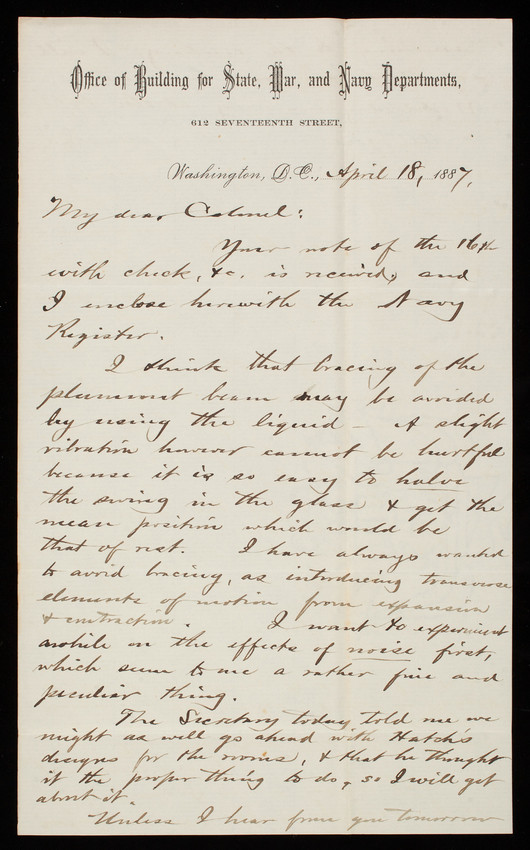 Office of Building for State, War, and Navy Departments,
612 SEVENTEENTH STREET,
Washington, D.C., April 18, 1887,
My dear Colonel:
Your note of the 16th
with check, &c. is received, and
I enclose herewith the Navy
Register.
I think that bracing of the
plummet beam may be avoided
by using the liquid - A slight
vibration however cannot be hurtful
because it is so easy to halve
the swing in the glass & get the
mean position which would be
that of rest. I have always wanted
to avoid bracing, as introducing transverse
elements of motion from expansion
& contraction. I want to experiment
awhile on the effects of noise first,
which seem to me a rather fine and
peculiar thing.
The Secretary today told me we
might as well go ahead with Hatch's
designs for the rooms, & that he thought
it the proper thing to do, so I will get
about it.
Unless I hear from you tomorrow